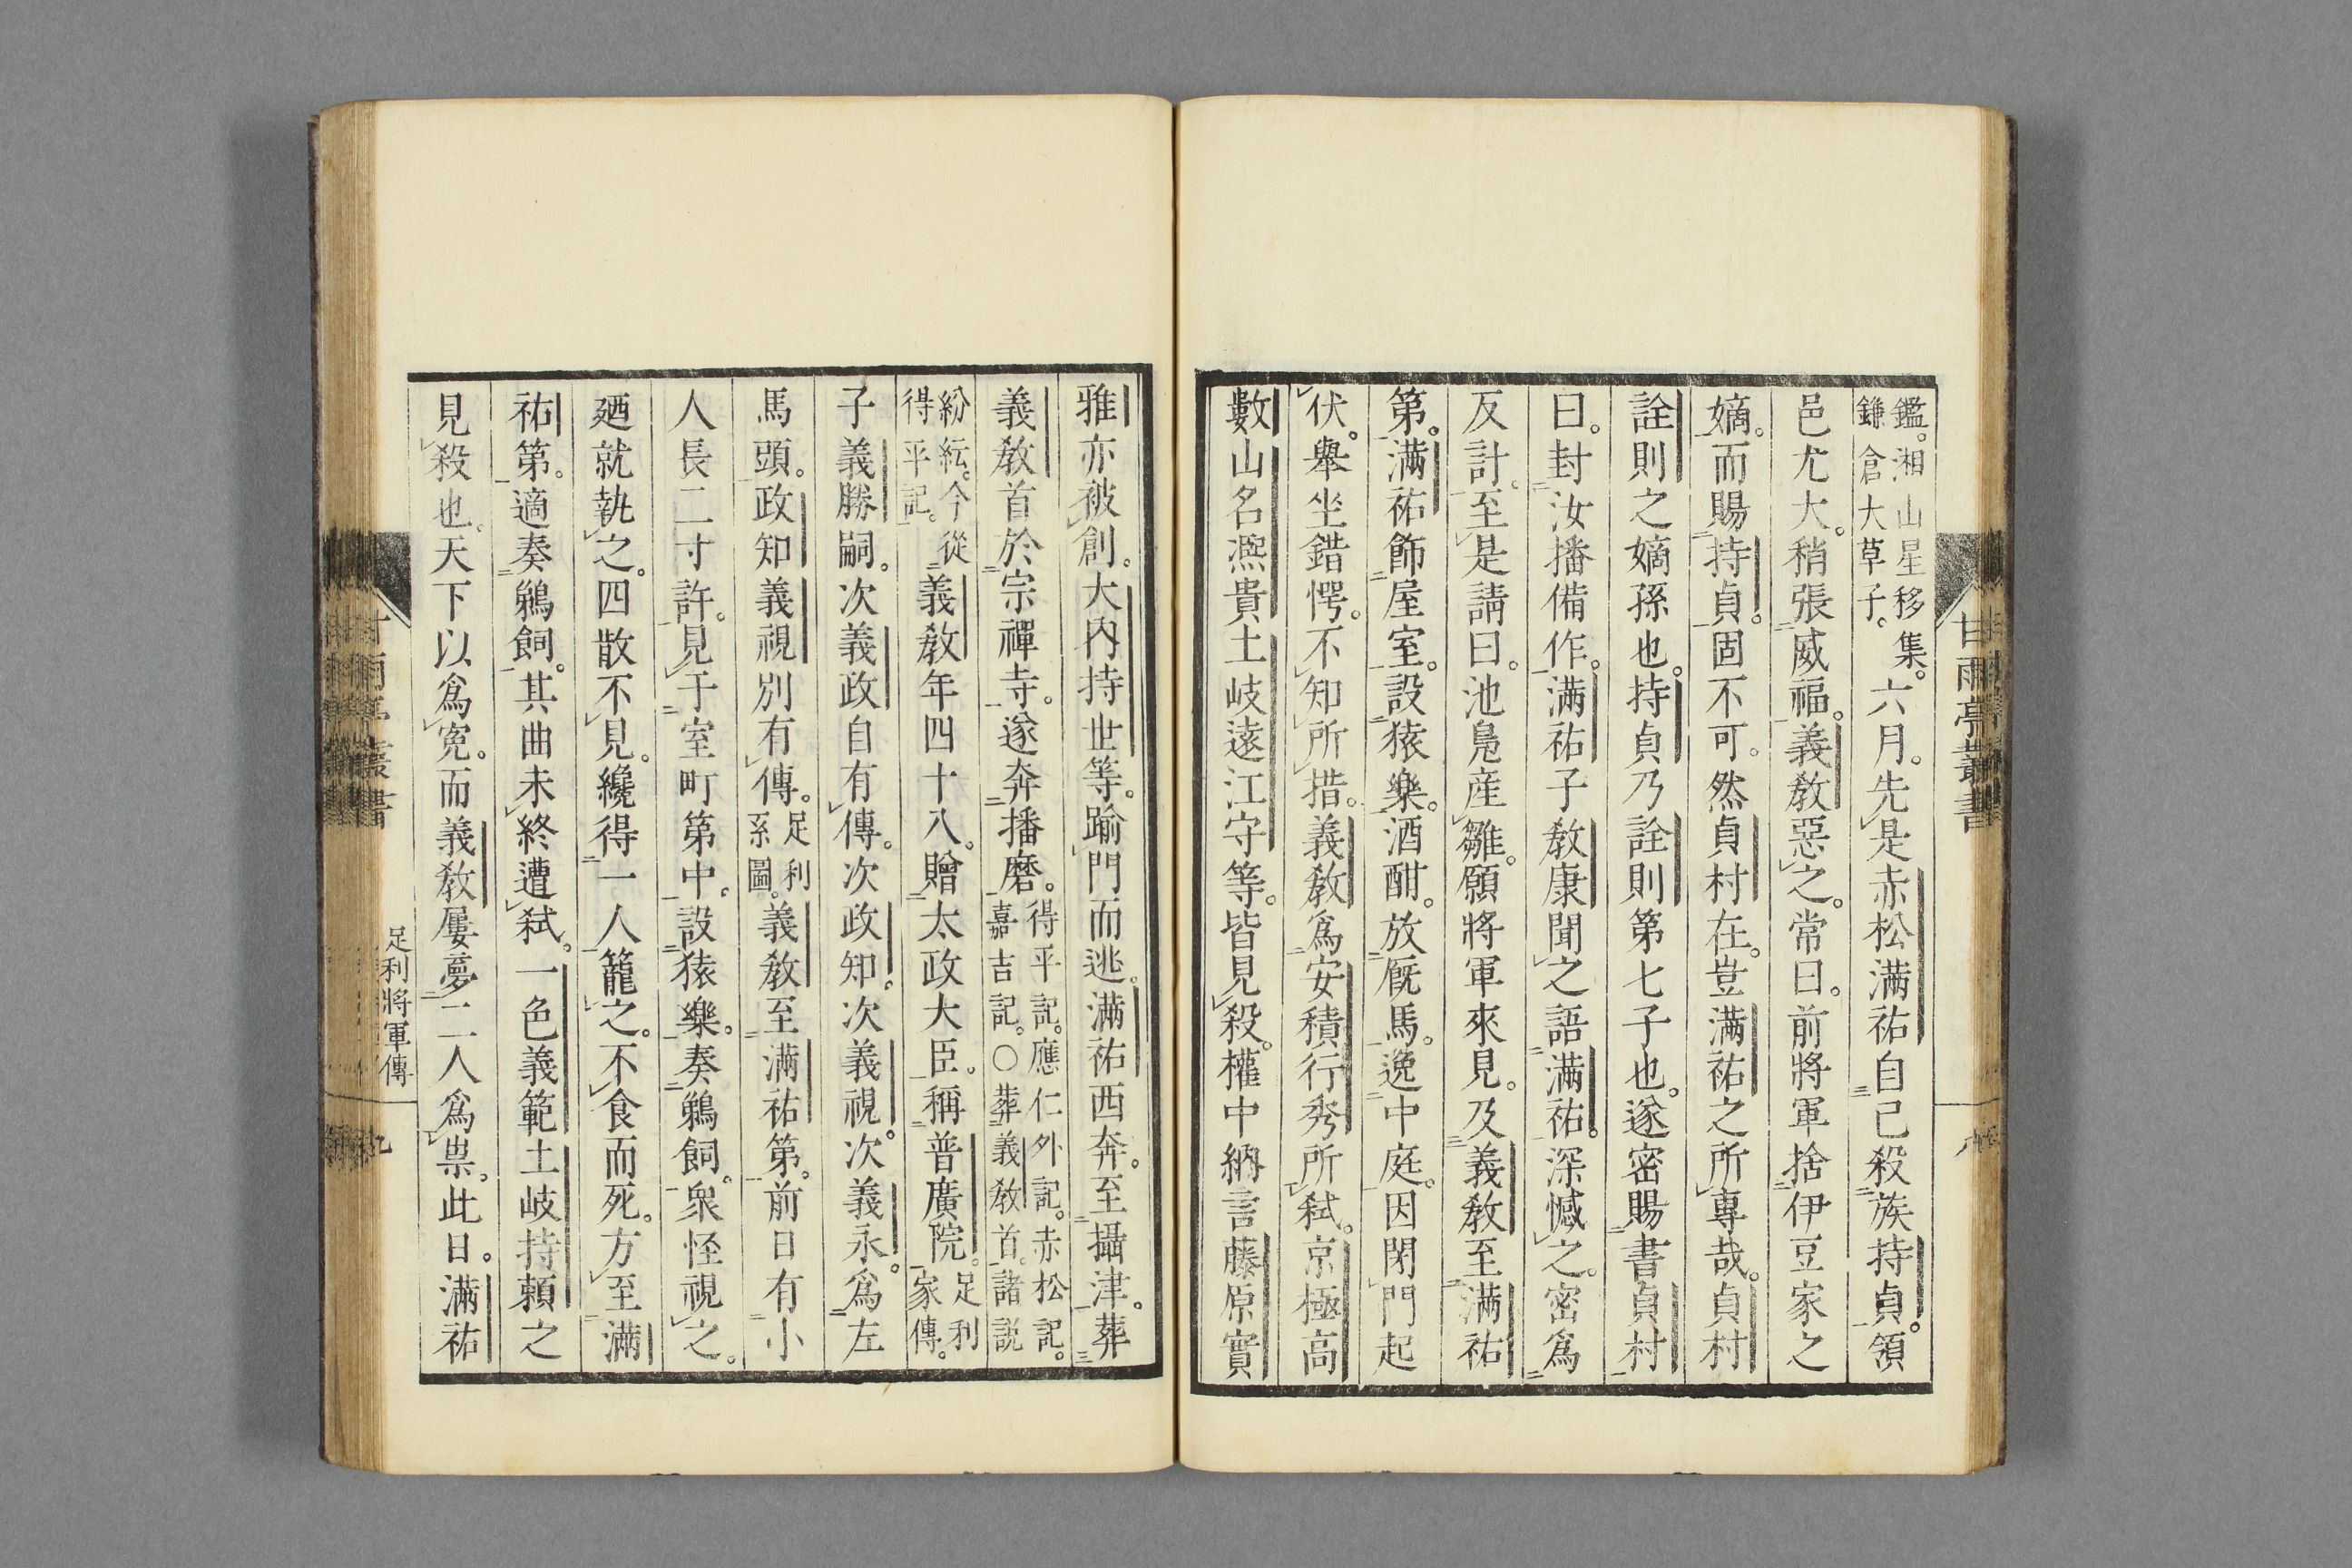 鑑。湘山星移集。
鎌倉大草子。
六月。先是赤松滿祐自己殺族持貞。領
邑尤大。稍張威福。義教惡之。常曰。前將軍捨伊豆家之
嫡。而賜持貞。固不可。然貞村在。豈滿祐之所專哉。貞村
詮則之嫡孫也。持貞乃詮則第七子也。遂密賜書貞村
曰。封汝播備作。滿祐子教康聞之語滿祐。深憾之。密爲
反計。至是請曰。池鳧産雛。願將軍來見。及義教至滿祐
第。滿祐飾屋室。設猿樂。酒酣。放厩馬。逸中庭。因閉門起
伏。舉坐錯愕。不知所措。義教爲安積行秀所弑。京極高
數山名凞貴土岐遠江守等。皆見殺。權中納言藤原實
甘雨亭叢書
雅亦被創。大內持世等。踰門而逃。滿祐西奔。至攝津。葬
義教首於宗禪寺。遂奔播磨。
得平記。應仁外記。赤松記。
嘉吉記。○葬義教首。諸説
紛紜。今從
得平記。
義教年四十八。贈太政大臣。稱普廣院。
足利
家傳。
子義勝嗣。次義政自有傳。次政知。次義視。次義永。爲左
馬頭。政知義視別有傳。
足利
系圖。
義教至滿祐第。前日有小
人長二寸許。見于室町第中。設猿樂。奏鵜飼。衆怪視之。
廼就執之。四散不見。纔得一人籠之。不食而死。方至滿
祐第。適奏鵜飼。其曲未終遭弑。一色義範土岐持賴之
見殺也。天下以爲寃。而義教屢夢二人爲祟。此日。滿祐
足利將軍傳
九